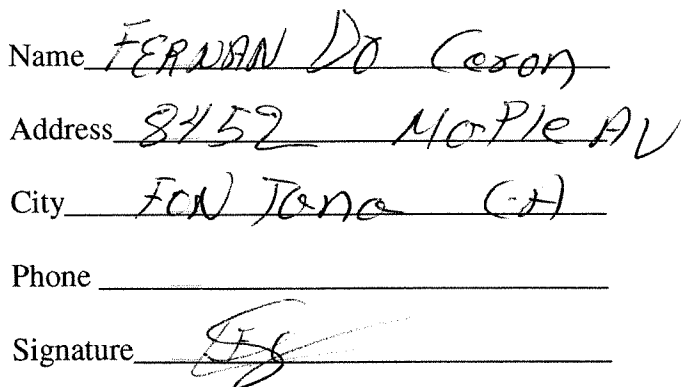 Name FERNAN Do Ceron
Address 8452 MaPle AV
City FON Tana CA
Phone
Signature